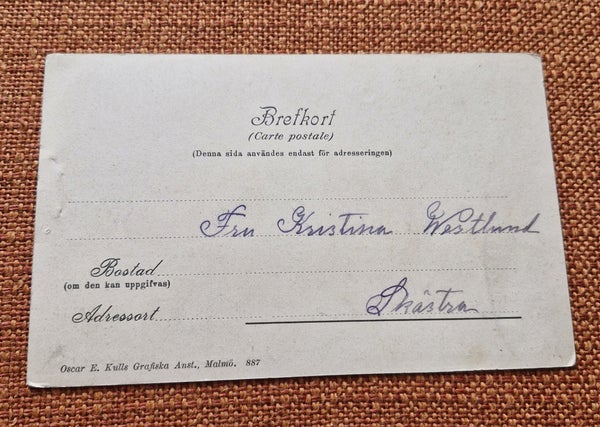 Brefkort
(Carte postale)
(Denna sida användes endast för adresseringen)
Fru Kristina Westlund
Bostad
(om den kan uppgifvas)
Skästra
Adressort
Oscar E. Kulls Grafiska Anst., Malmö. 887